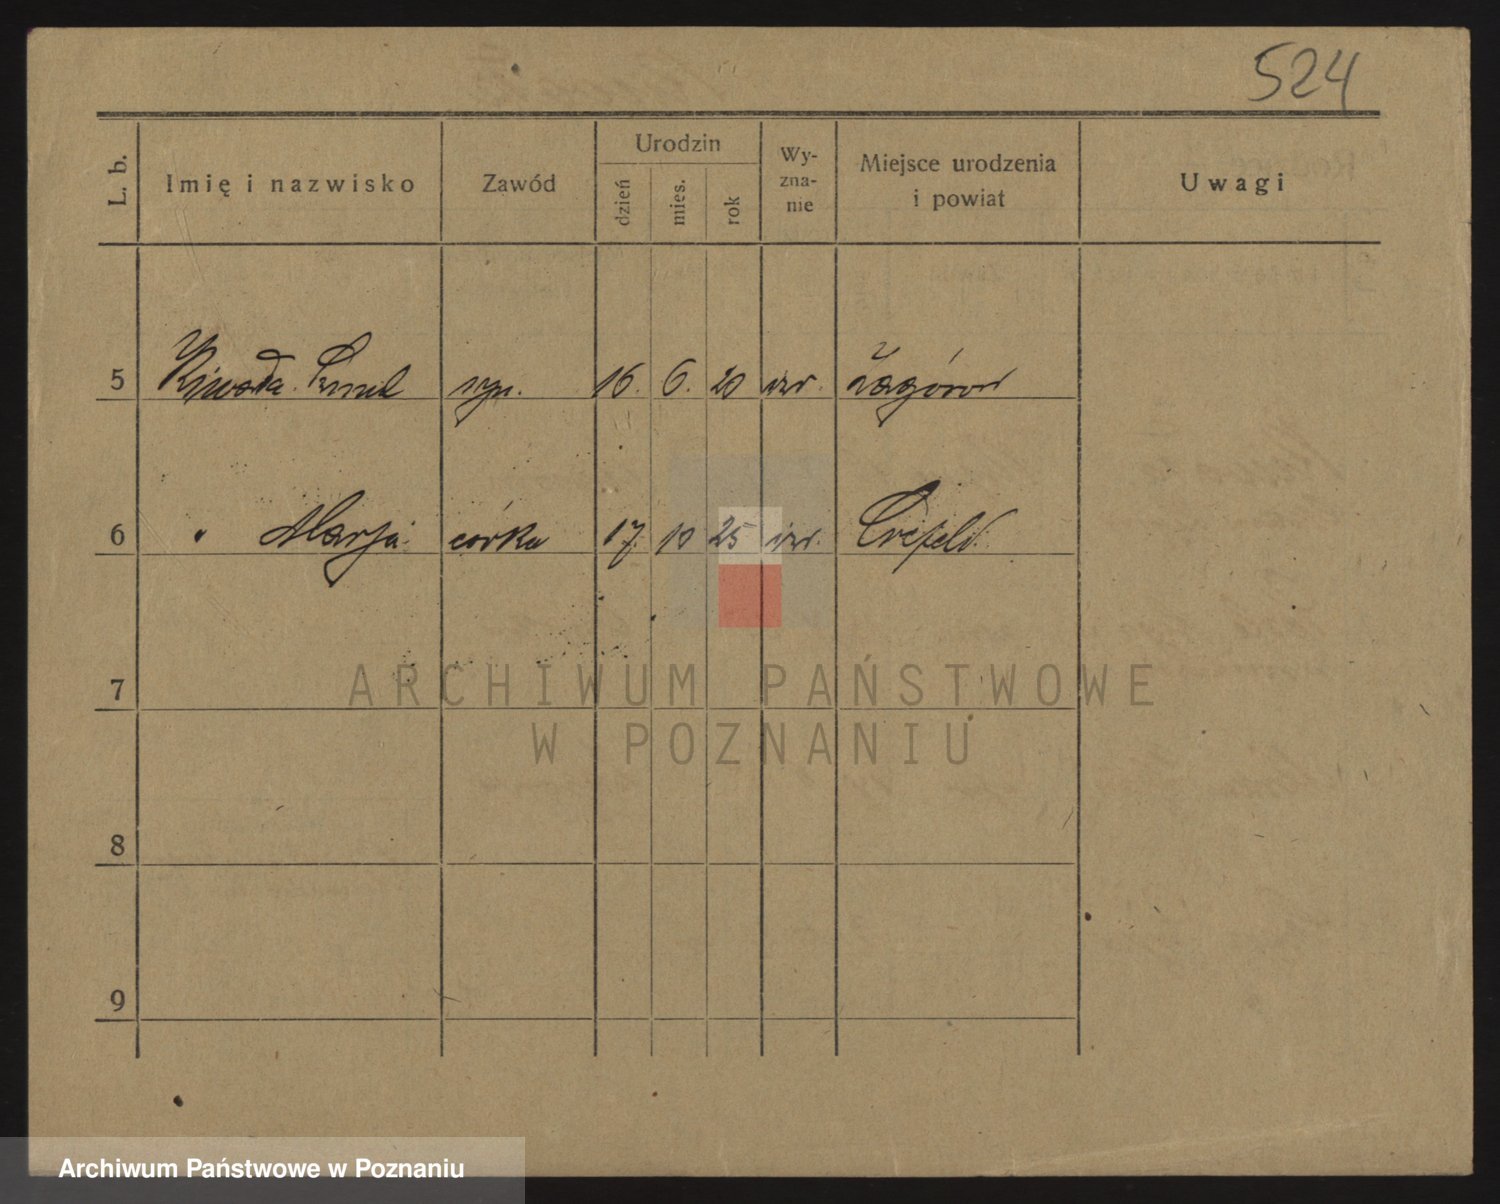 524
L. b. Imię i nazwisko Zawód Urodzin dzień mies. rok Wy-zna-nie Miejsce urodzenia i powiat Uwagi
5 syn. 16. 6. 20 izr. Zagórów
6 " Marja córka 17. 10 25 izr. Crefeld.
7
ARCHIWUM PAŃSTWOWE
W POZNANIU
8
9
Archiwum Państwowe w Poznaniu